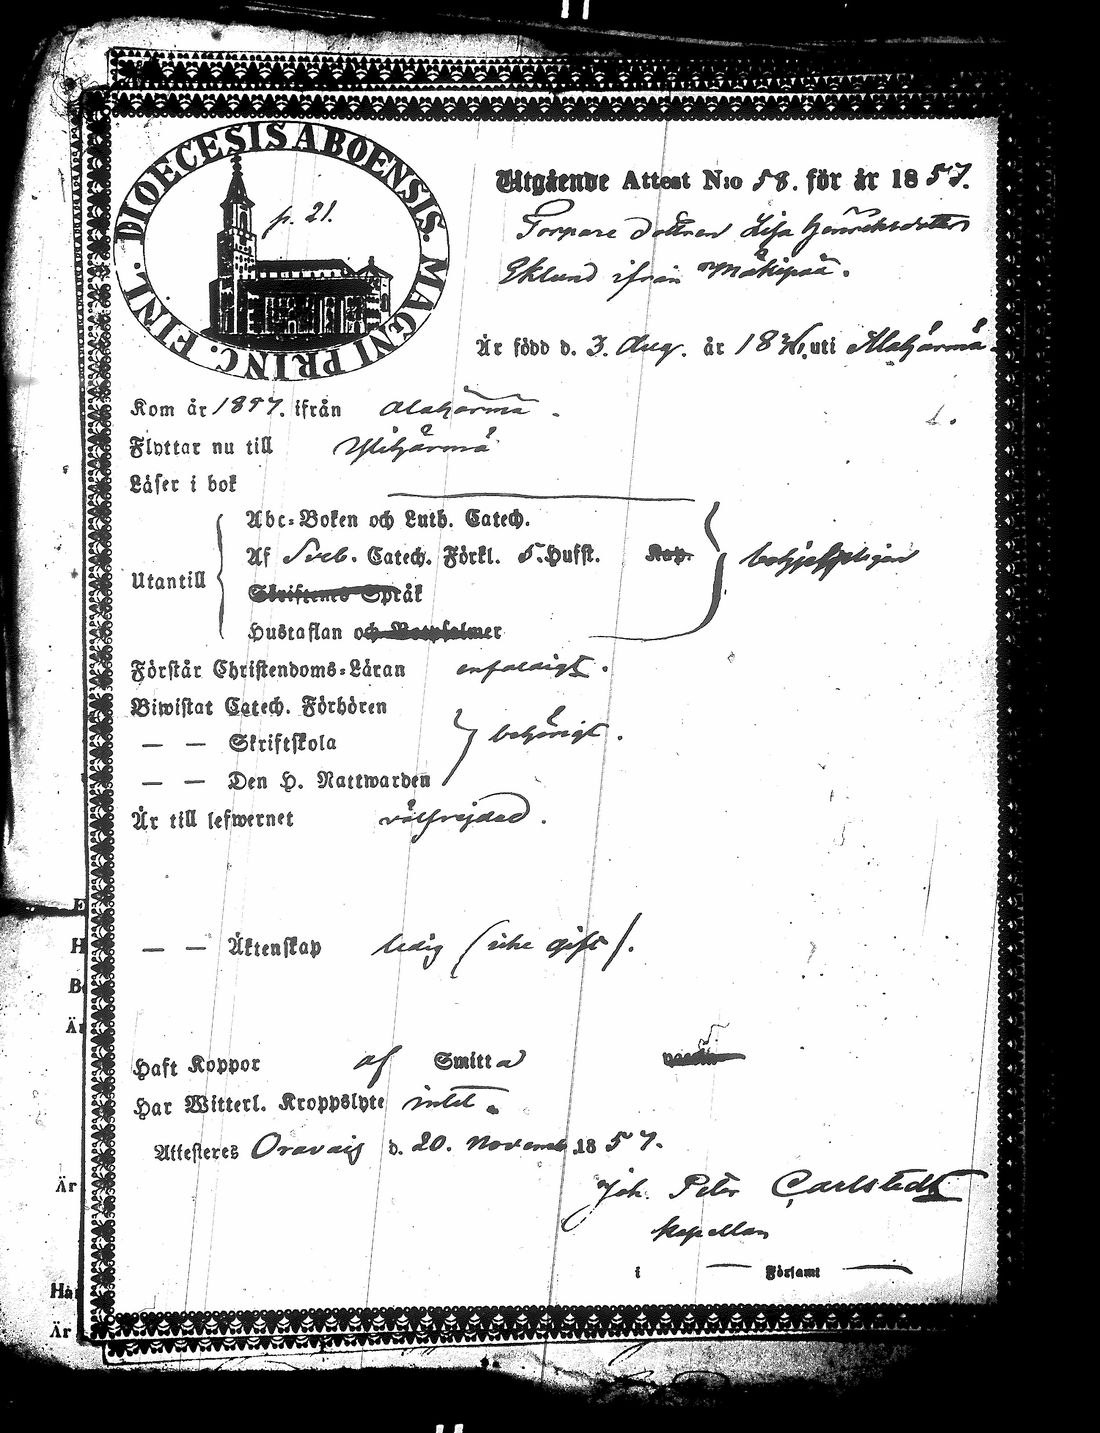 DIOECESIS ABOENSIS. MAGNI PRINC. FINL.
p. 21.
Utgående Attest N:o 58. för år 1857.
Torpare dottren Lisa Henriksdotter
Eklund ifrån Mäkipää.
Är född d. 3. Aug. år 18 uti Alahärmä.
Kom år 1857. ifrån Alahärmä.
Flyttar nu till Ylihärmä
Läser i bok
Abc-Boken och Luth. Catech.
Af Sveb. Catech. Förkl. 5. Hufst. Kap.
Utantill
Skriftenes Språk
Hustaflan och Botpsalmer
Förstår Christendoms-Läran enfaldigt.
Biwistat Catech. Förhören
— — Skriftskola behörigt.
— — Den H. Nattwarden
Är till lefwernet välfrejdad.
— — Äktenskap ledig (icke gift).
Haft Koppor af Smitta
Har Witterl. Kroppslyte intet.
Attesteres Oravais d. 20. Novemb. 1857.
Joh. Peter Carlstedt
kapellan
i — Församl —
E
H
Be
Är
Är
Har
Är